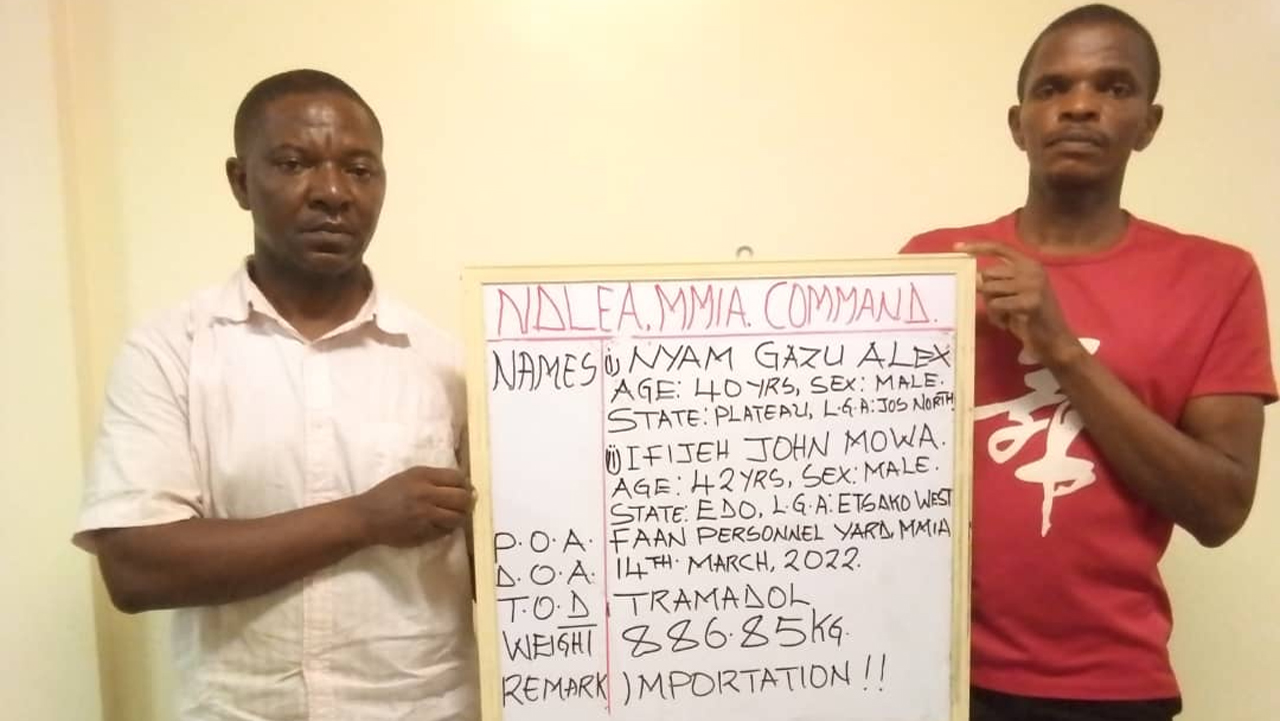 NDLEA. MMIA. COMMAND.
NAMES (i) NYAM GAZU ALEX
AGE: 40 YRS, SEX: MALE.
STATE: PLATEAU, L.G.A: JOS NORTH
(ii) IFIJEH JOHN MOWA.
AGE: 42 YRS, SEX: MALE.
STATE: EDO, L.G.A: ETSAKO WEST
P.O.A. FAAN PERSONNEL YARD, MMIA
D.O.A. 14TH. MARCH, 2022.
T.O.D TRAMADOL
WEIGHT 886.85KG.
REMARK IMPORTATION!!